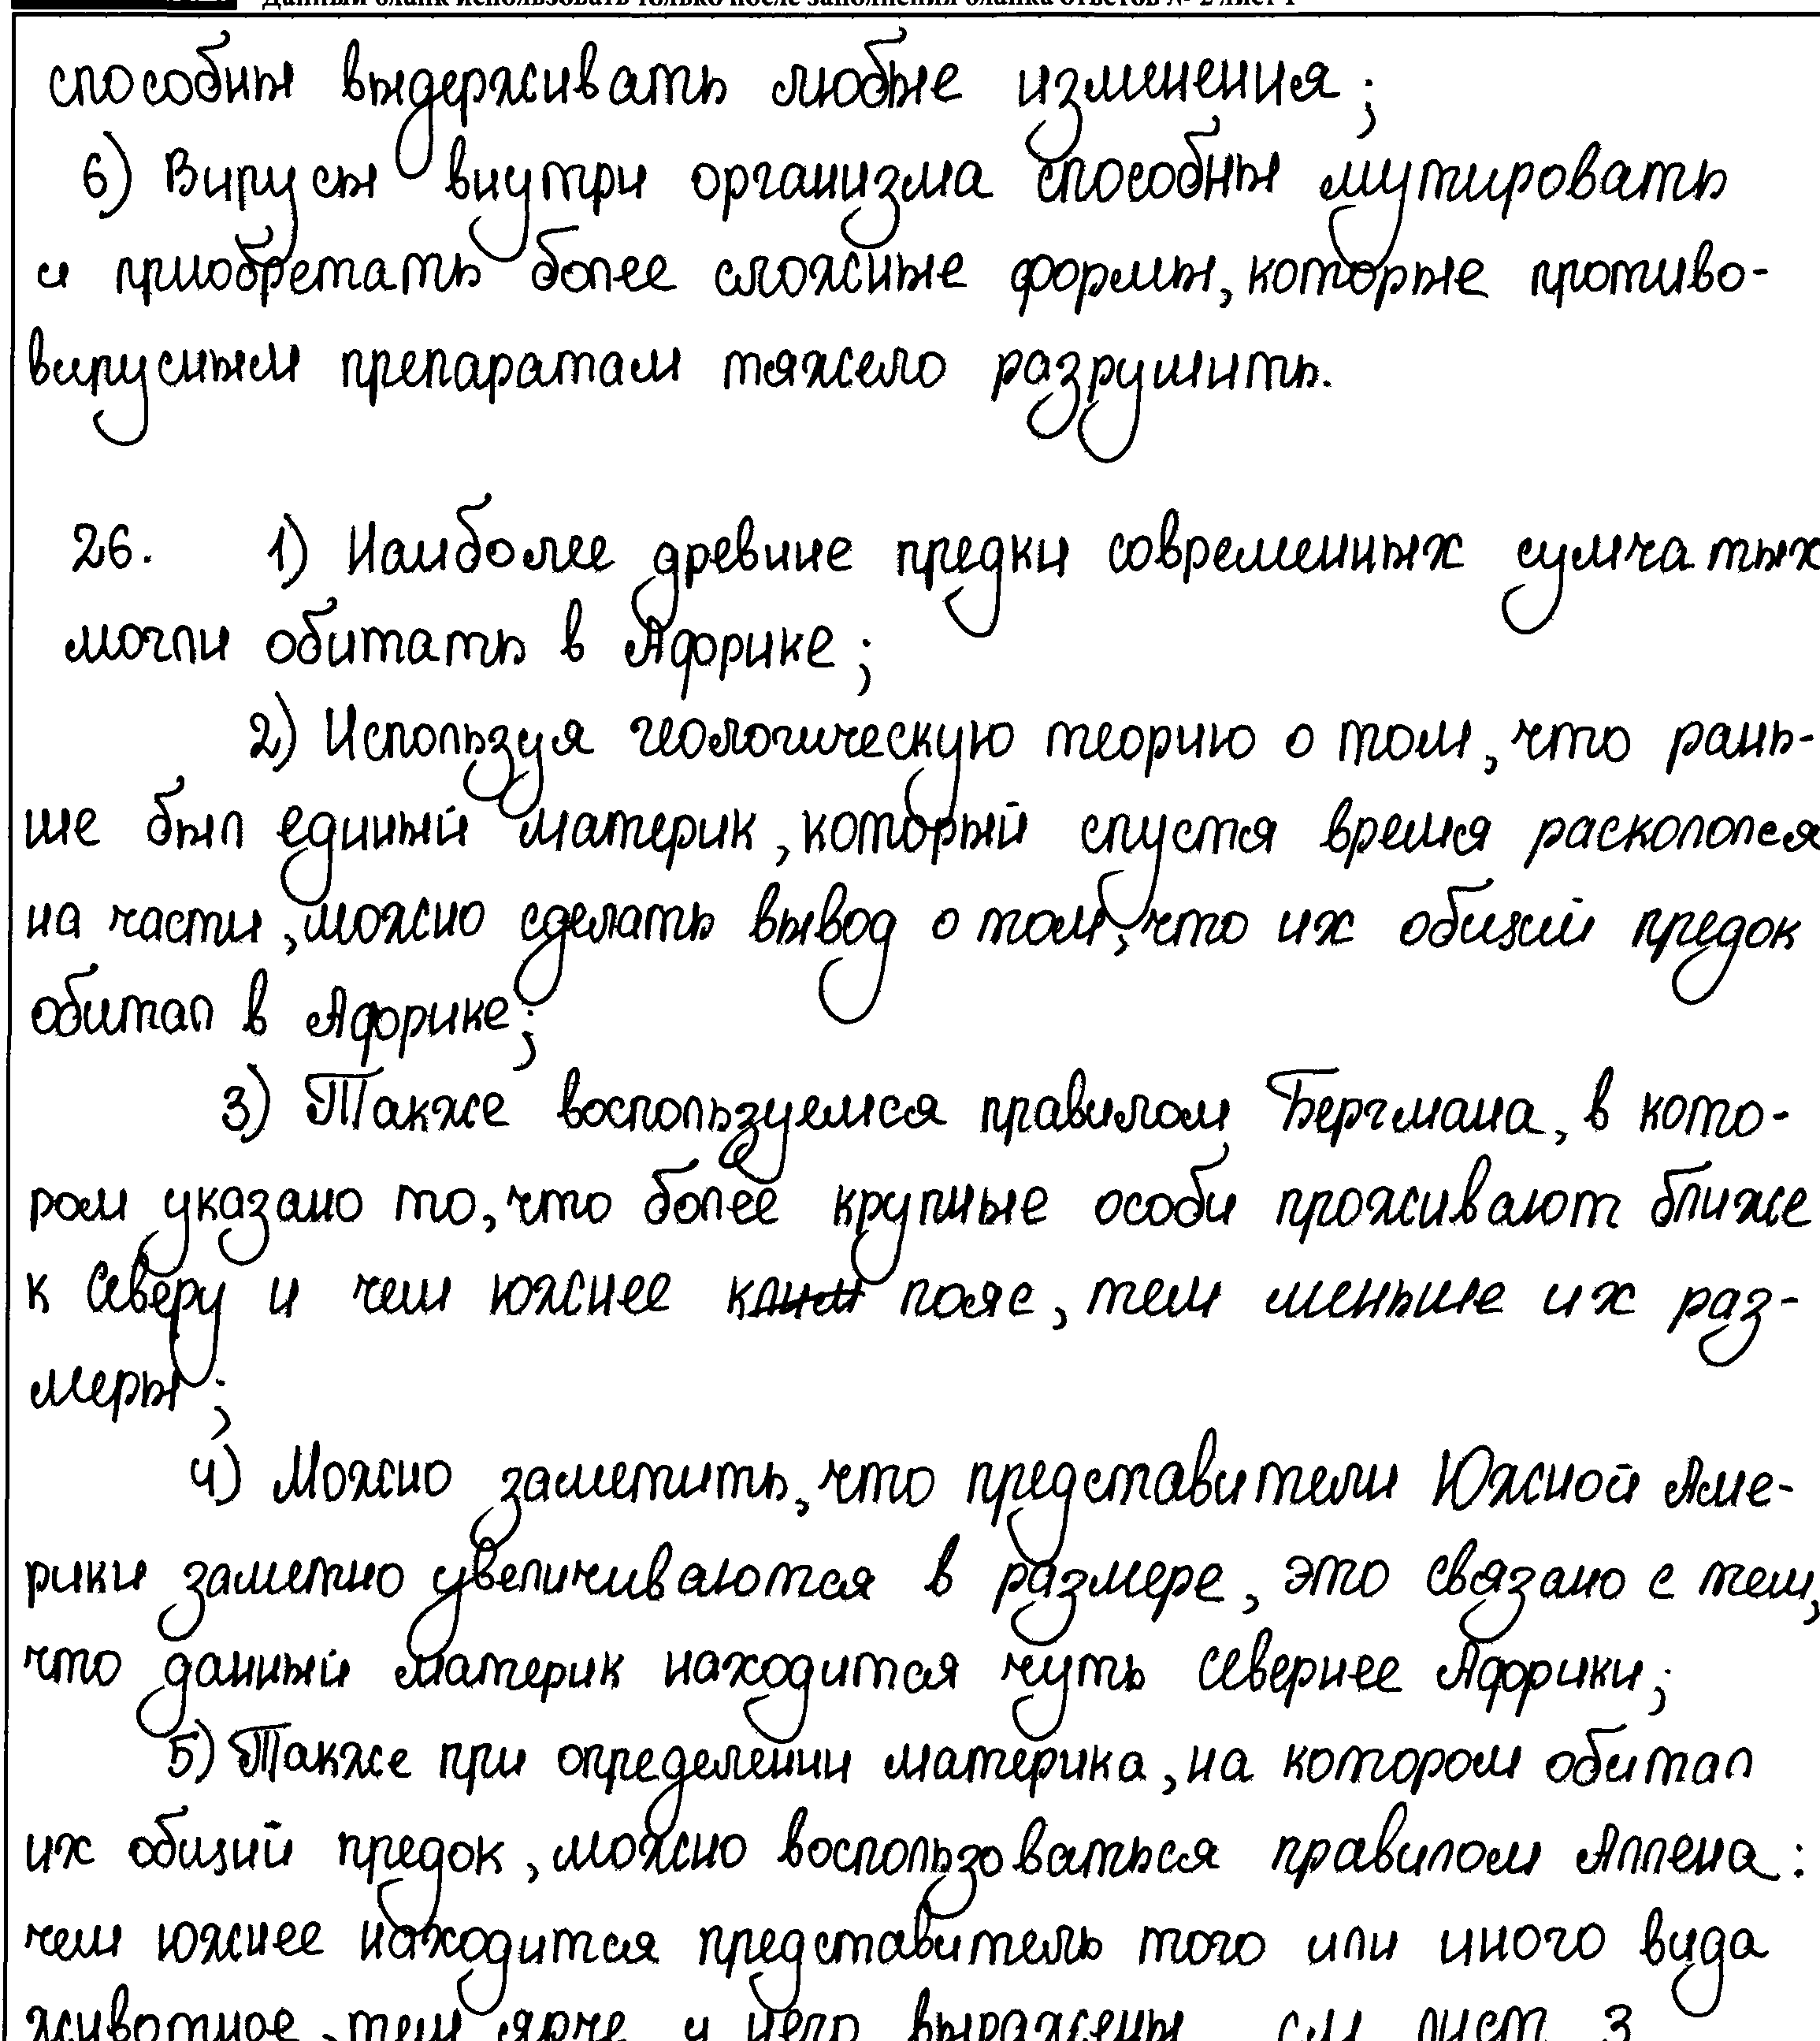 Данный бланк использовать только после заполнения бланка ответов № 2 лист 1
способны выдерживать любые изменения;
6) Вирусы внутри организма способны мутировать
и приобретать более сложные формы, которые противо-
вирусным препаратам тяжело разрушить.
26. 1) Наиболее древние предки современных сумчатых
могли обитать в Африке;
2) Используя геологическую теорию о том, что рань-
ше был единый материк, который спустя время раскололся
на части, можно сделать вывод о том, что их общий предок
обитал в Африке;
3) Также воспользуемся правилом Бергмана, в кото-
ром указано то, что более крупные особи проживают ближе
к северу и чем южнее клим пояс, тем меньше их раз-
меры;
4) Можно заметить, что представители Южной Аме-
рики заметно увеличиваются в размере, это связано с тем,
что данный материк находится чуть севернее Африки;
5) Также при определении материка, на котором обитал
их общий предок, можно воспользоваться правилом Аллена:
чем южнее находится представитель того или иного вида
животное, тем ярче у него выражены см лист 3